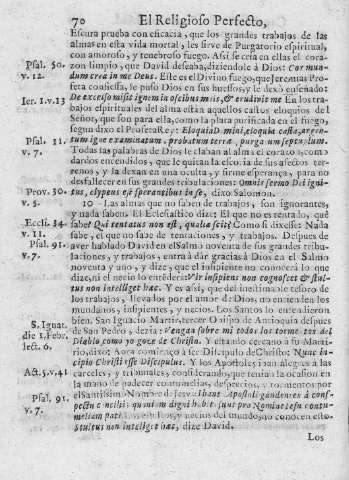 70 El Religioso Perfecto,
Escura prueba con eficacia, que los grandes trabajos de las
almas en esta vida mortal, les sirve de Purgatorio espiritual,
con amoroso, y tenebroso fuego. Assi seria en ellas el cora-
zon limpio, que David deseaba, diziendole à Dios: Cor mun-
dum crea in me Deus. Este es el Divino fuego, que Jeremias Pro-
feta confiessa, le puso Dios en sus huessos, y le dexò enseñado:
De excelso misit ignem in ossibus meis, & erudivit me En los tra-
bajos espirituales del alma estàn aquellos castos eloquios del
Señor, que son para ella, como la plata purificada en el fuego,
segun dixo el Profeta Rey: Eloquia D mini, eloquia casta, argen-
tum igne examinatum, probatum terræ, purga um septuplum.
Todas las palabras de Dios le clavan al alma el corazo, como
dardos encendidos, que le quitan la escoria de sus afectos ter-
renos, y la dexan en una oculta, y firme esperança, para no
desfallecer en sus grandes tribulaciones: Omnis sermo Dei ig-
nitus, clypeus est sperantibus in se, dixo Salomon.
10 Las almas que no saben de trabajos, son ignorantes,
y nada saben. El Eclesiastico dize: El que no es tentado, què
sabe? Qui tentatus non est, qualia scit? Como si dixesse: Nada
sabe, el que no sabe de tentaciones, y trabajos. Despues de
aver hablado David en el Salmo noventa de sus grandes tribu-
laciones, y trabajos, entra à dàr gracias à Dios en el Salmo
noventa y uno, y dize, que el insipiente no conocerà lo que
dize, ni el necio lo entenderà: Vir insipiens non cognoscet & stul-
tus non intelliget hæc. Y es assi, que del inestimable tesoro de
los trabajos, llevados por el amor de Dios, no entienden los
mundanos, insipientes, y necios. Los Santos lo entendieron
bien. San Ignacio Martir, tercer Obispo de Antioquia despues
de San Pedro, dezia: Vengan sobre mi todos los torme tos del
Diablo como yo goze de Christo. Y estando cerca à su Marti-
rio, dixo: Aora comiença à ser Discipulo de Christo: Nunc in-
cipio Christi esse Discipulus. Y los Apostoles iban alegres à las
carceles, y tribunales, considerando, que tenia la ocasion en
la mano de padecer contumelias, desprecios, y tormentos por
el santissimo Nombre de Jesus: Ibant Apostoli gaudentes à cons-
pectu concilii: quoniam digni habiti sunt pro Nomine Jesu contu-
meliam pati y necios del mundo, no conocen esto:
Stultus non intelliget hæc, dize David.
Los
Psal. 50.
v. 12.
Ier. 1. v. 13
Psal. 11.
v. 7.
Prov. 30.
v. 5.
Eccli. 34.
v. 11.
Psal. 91.
v. 7.
S. Ignat.
die 1. Febr.
lect. 6.
Act. 5. v. 41
Psal. 91.
v. 7.